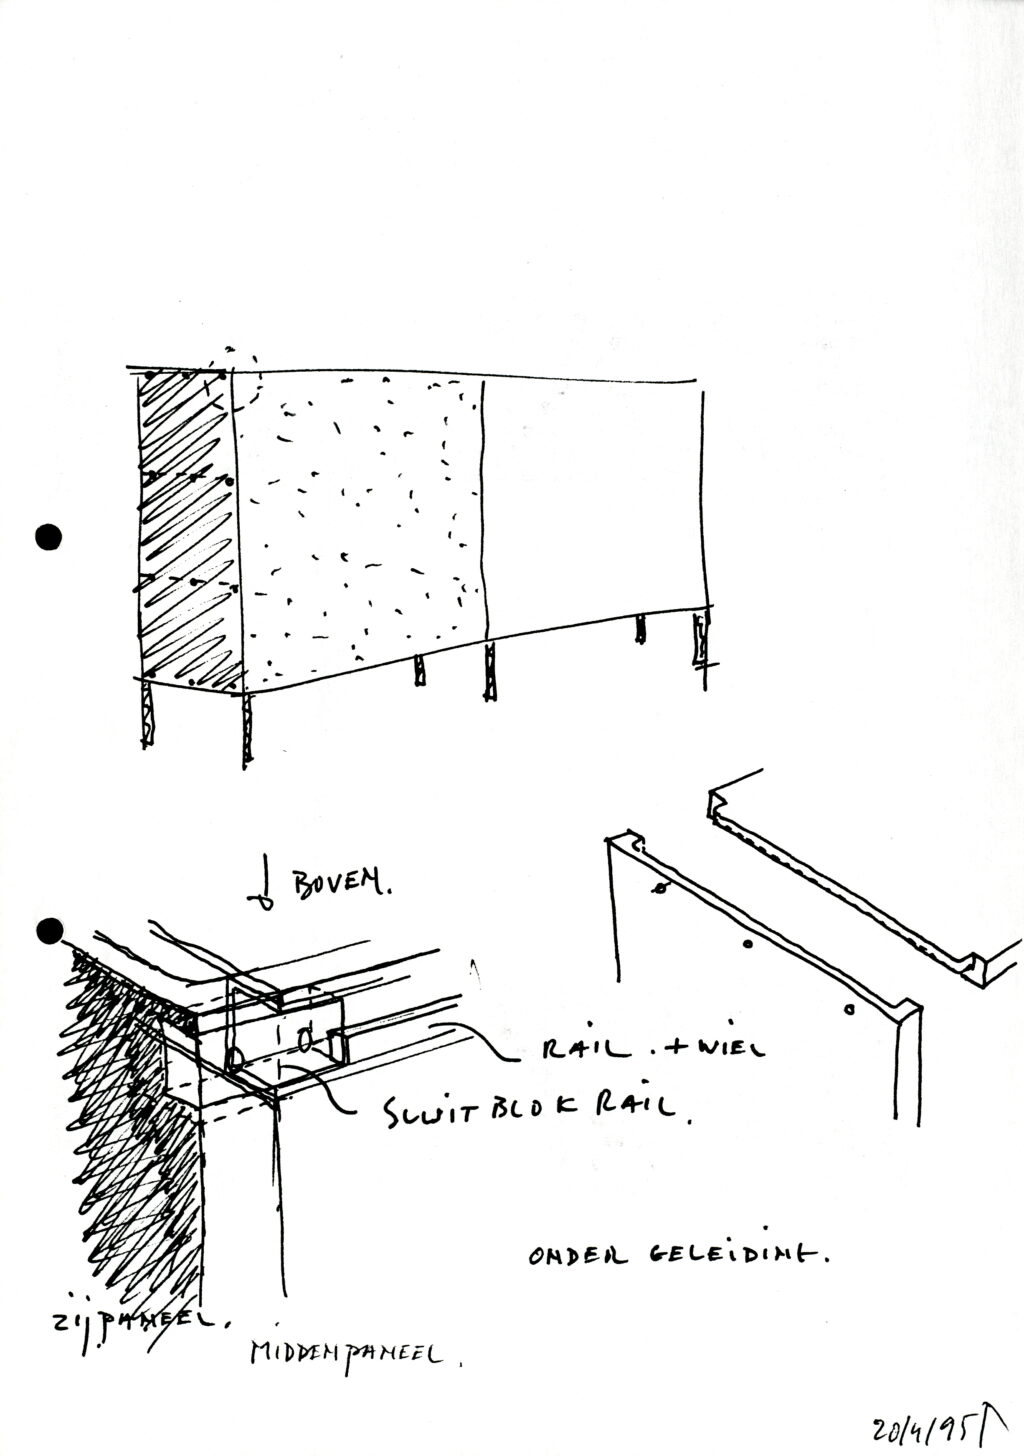 BOVEN.
RAIL . + WIEL
SLUIT BLOK RAIL.
ONDER GELEIDING.
ZIJPANEEL.
MIDDENPANEEL.
20/4/95